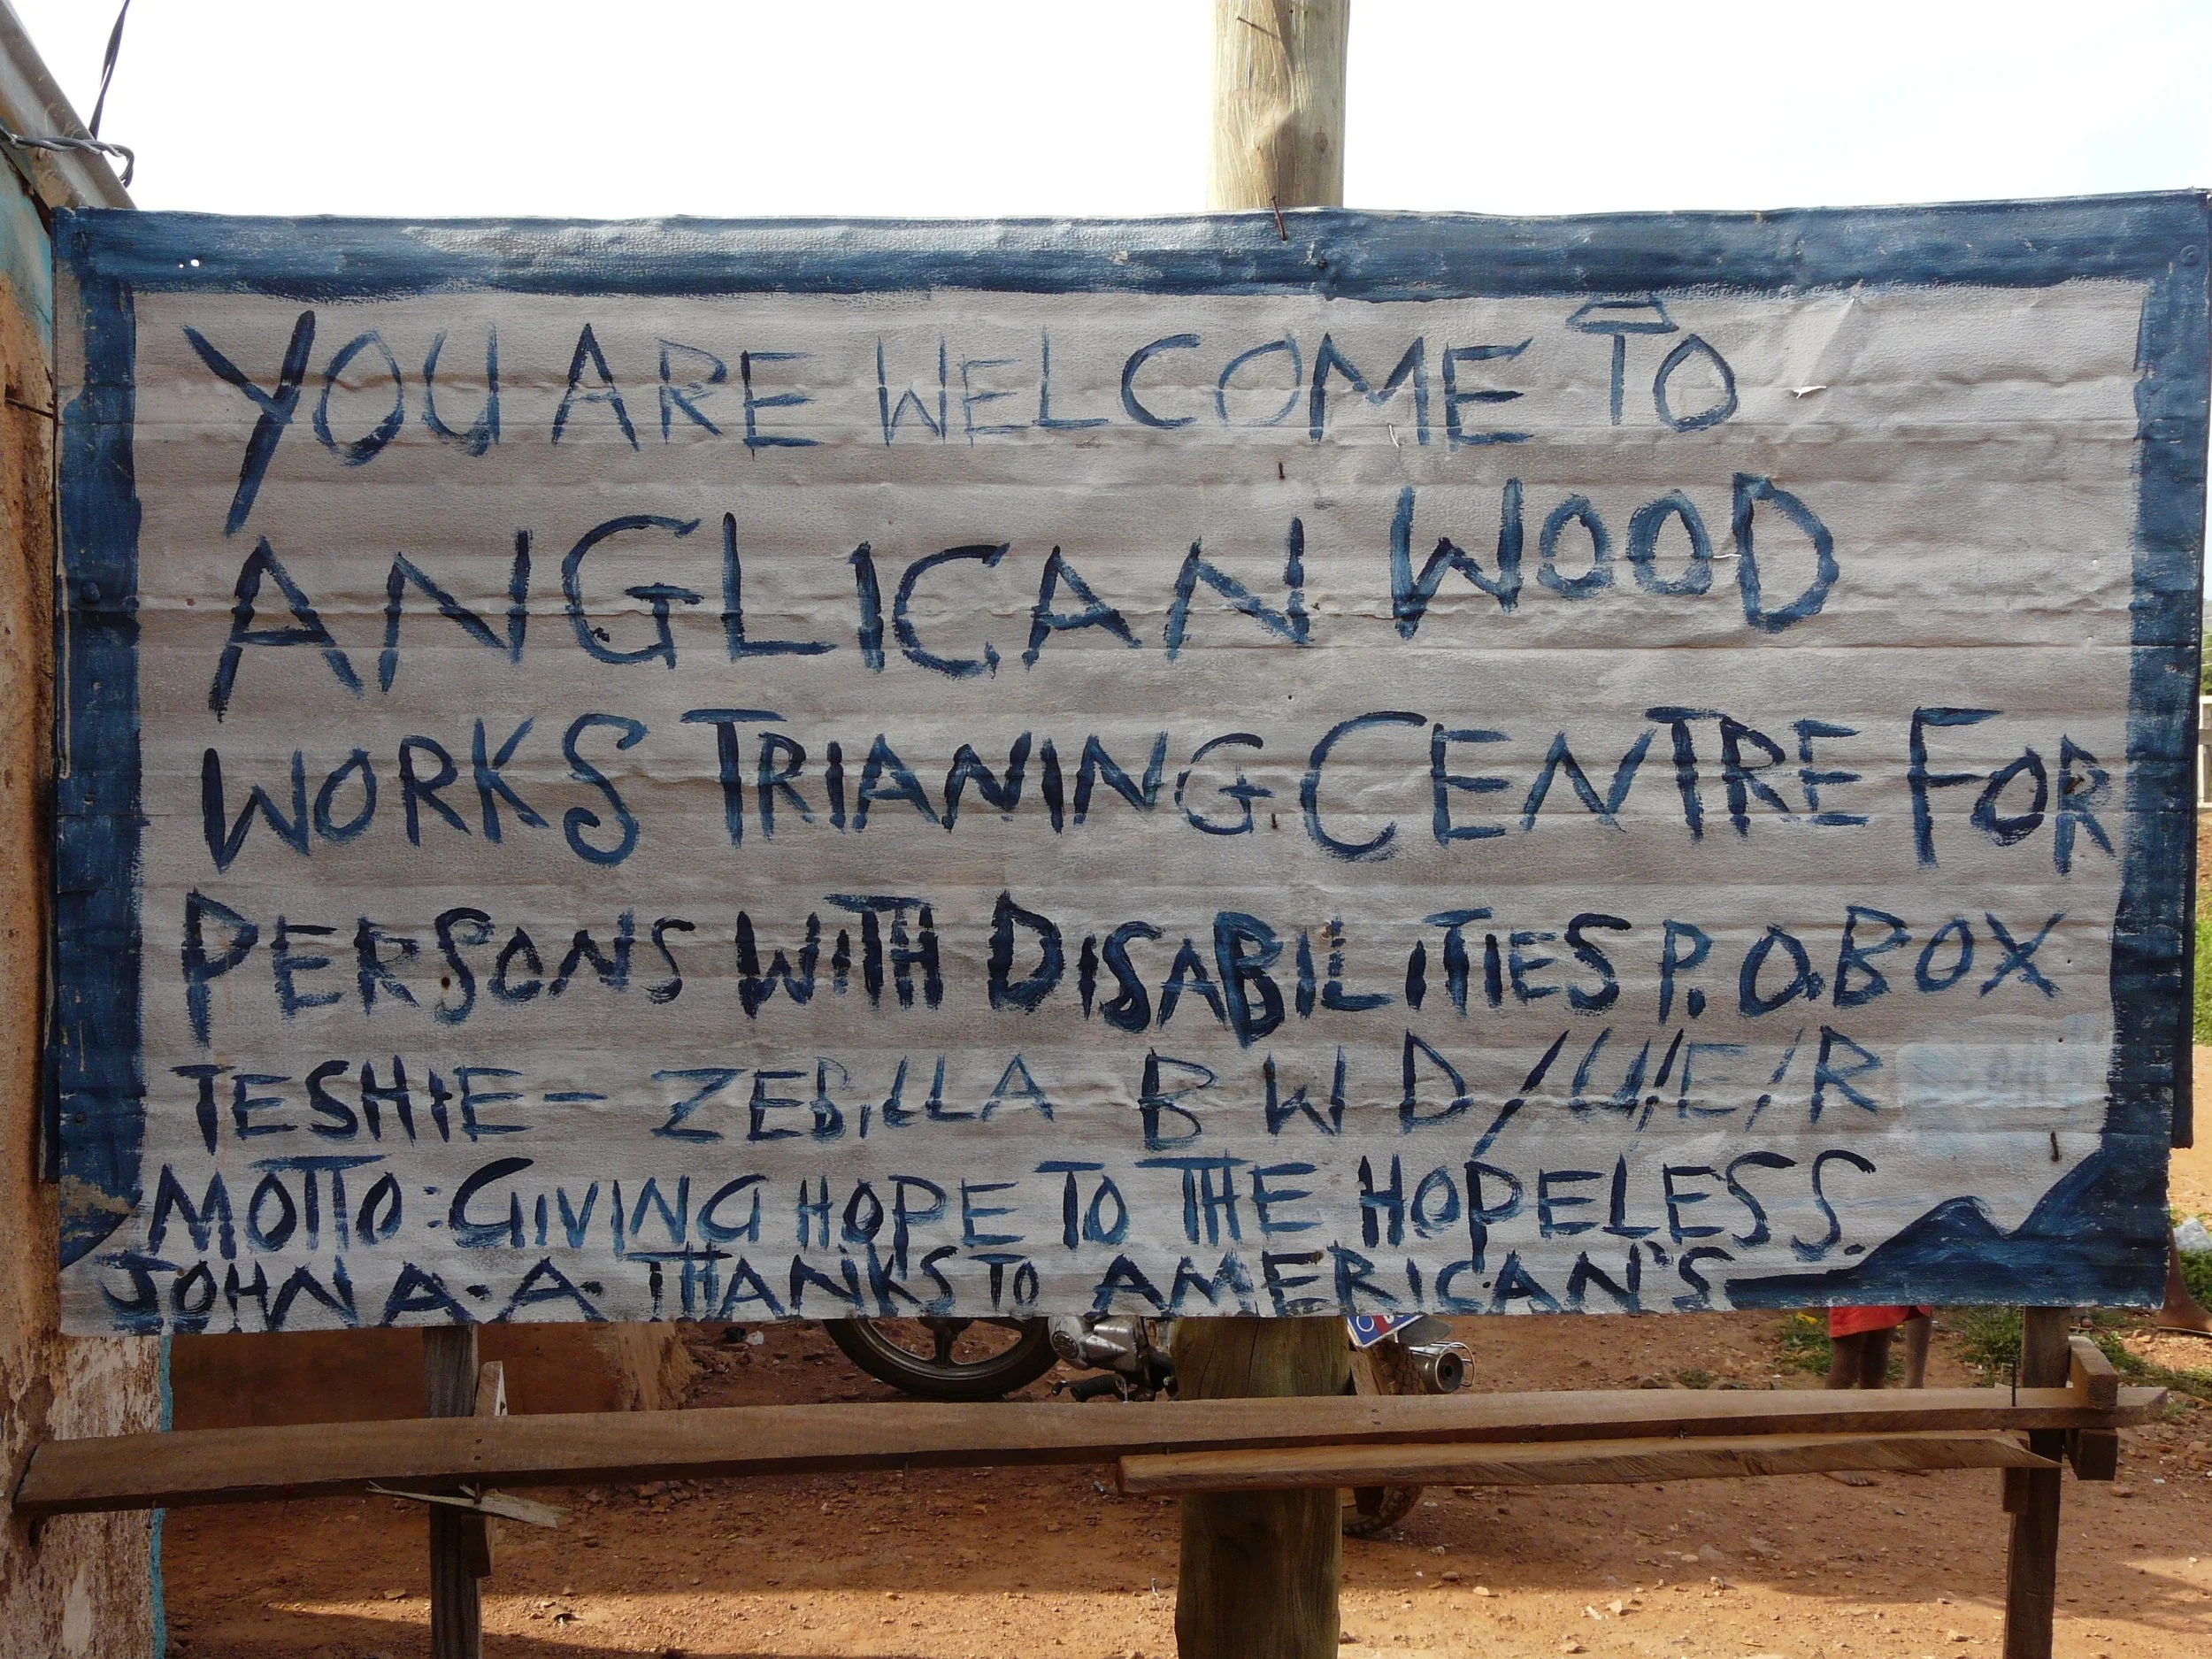 YOU ARE WELCOME TO
ANGLICAN WOOD
WORKS TRIANING CENTRE FOR
PERSONS WITH DISABILITIES P.O.BOX
TESHIE - ZEBILLA B W D/U/E/R
MOTTO: GIVING HOPE TO THE HOPELESS.
JOHN A.A. THANKS TO AMERICAN'S